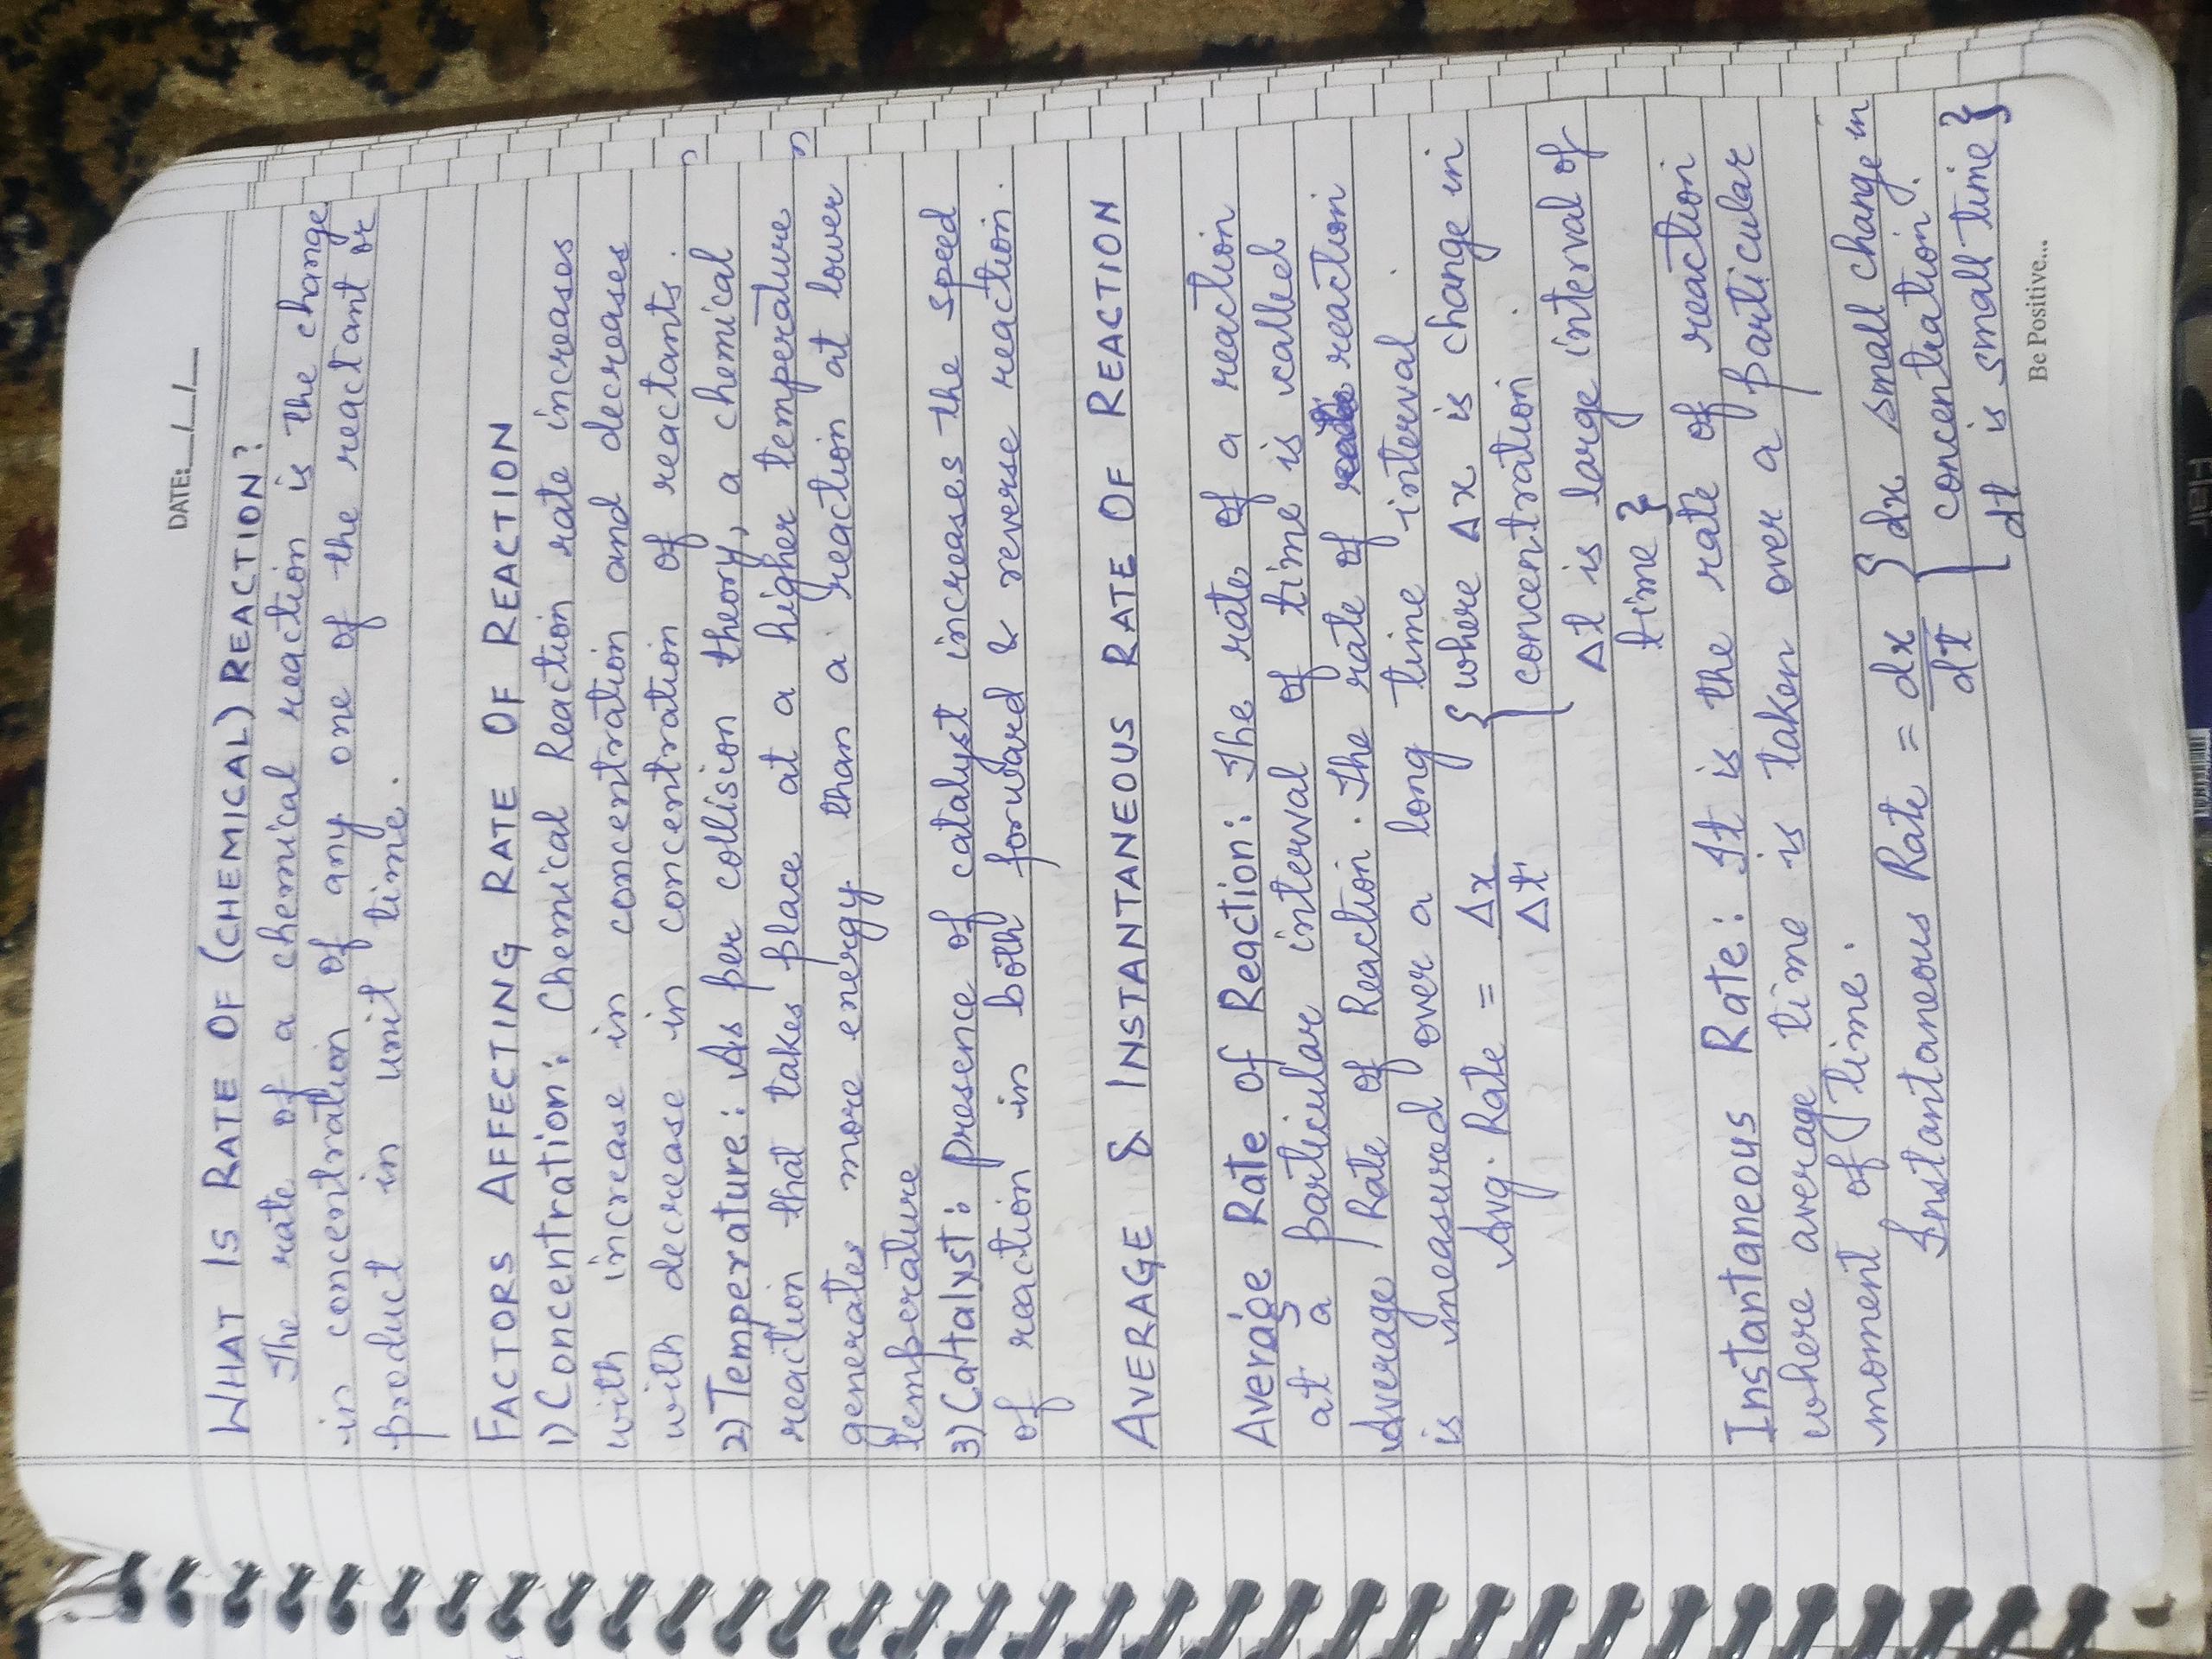 DATE: __/__/__
WHAT IS RATE OF (CHEMICAL) REACTION?
The rate of a chemical reaction is the change
in concentration of any one of the reactant or
product in unit time.
FACTORS AFFECTING RATE OF REACTION
1) Concentration: Chemical Reaction rate increases
with increase in concentration and decreases
with decrease in concentration of reactants.
2) Temperature: As per collision theory, a chemical
reaction that takes place at a higher temperature
generates more energy than a reaction at lower
temperature
3) Catalyst: presence of catalyst increases the speed
of reaction in both forward & reverse reaction.
AVERAGE & INSTANTANEOUS RATE OF REACTION
Average Rate of Reaction: The rate of a reaction
at a particular interval of time is called
Average Rate of Reaction. The rate of reaction
is measured over a long time interval.
Avg. Rate = Δx/Δt { where Δx is change in
concentration.
Δt is large interval of
time }
Instantaneous Rate: It is the rate of reaction
where average time is taken over a particular
moment of time.
Instantaneous Rate = dx/dt { dx small change in
concentration.
dt is small time }
Be Positive...
Flair